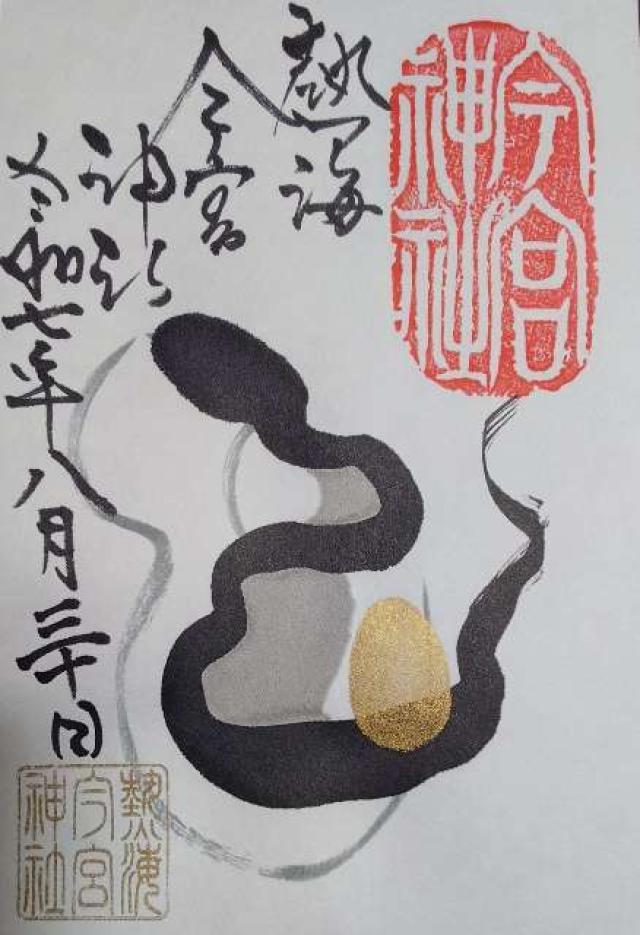 今宮
神社
熱海
今宮
神社
令和七年八月三十日
熱海
今宮
神社